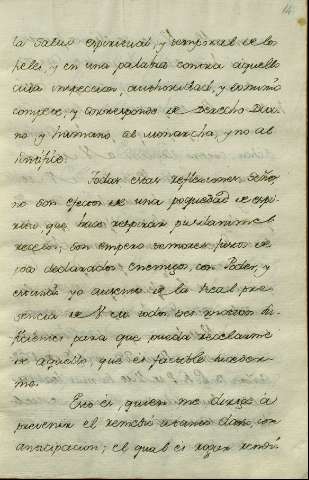 la salud espiritual, y temporal de los
fieles, y en una palabra contra aquello
cuia inspeccion, authoridad, y dominio
compete, y corresponde de Derecho Divi
no y humano, al monarcha, y no al
Pontifice.
Todas estas reflexiones, Señor,
no son efectos de una poquedad de espi
ritu que hace respirar puramente
recelos; son empero temores, de
declarados enemigos, con Poder, y
ausente de la Real pre
sencia de V. M. todos
ficientes para que pueda recelarme
de aquello, que es factible suceder
me.
Esto es, quien me dirige a
prevenir el remedio a tanto daño, con
anticipacion; el qual es rogar rendi